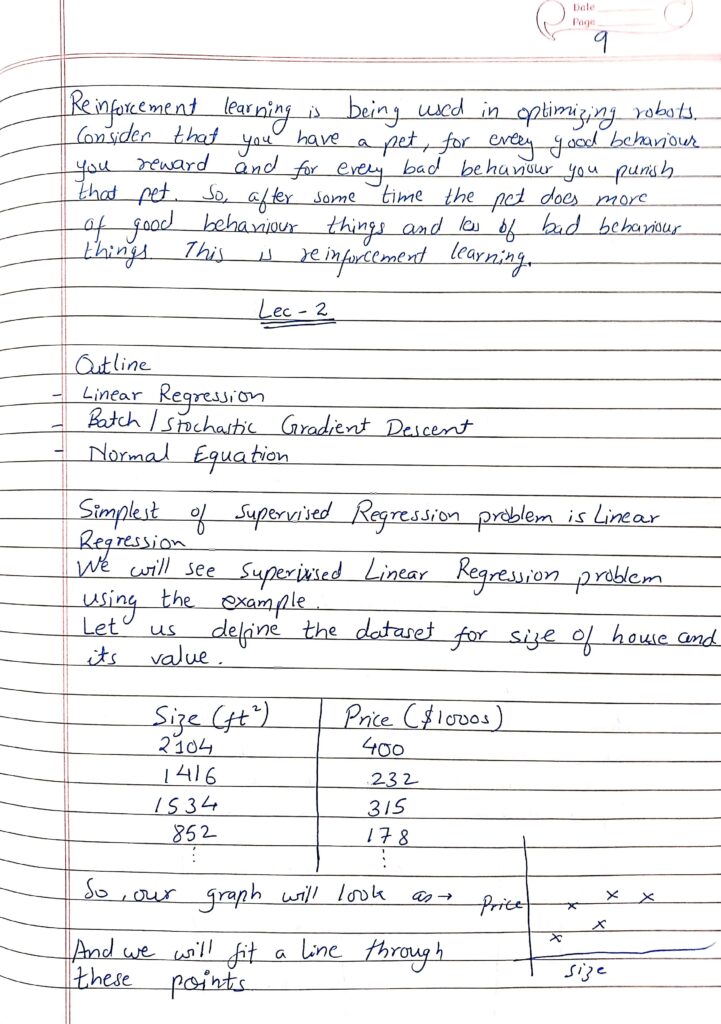 Date
Page
9
Reinforcement learning is being used in optimizing robots.
Consider that you have a pet, for every good behaviour
you reward and for every bad behaviour you punish
that pet. So, after some time the pet does more
of good behaviour things and less of bad behaviour
things. This is reinforcement learning.
Lec - 2
Outline
- Linear Regression
- Batch / Stochastic Gradient Descent
- Normal Equation
Simplest of Supervised Regression problem is Linear
Regression
We will see Supervised Linear Regression problem
using the example.
Let us define the dataset for size of house and
its value.
Size (ft²) Price ($1000s)
2104 400
1416 232
1534 315
852 178
⋮ ⋮
So, our graph will look as → Price
And we will fit a line through
these points
size